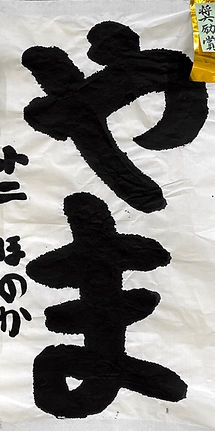 奨励賞
やま
小二 ほのか